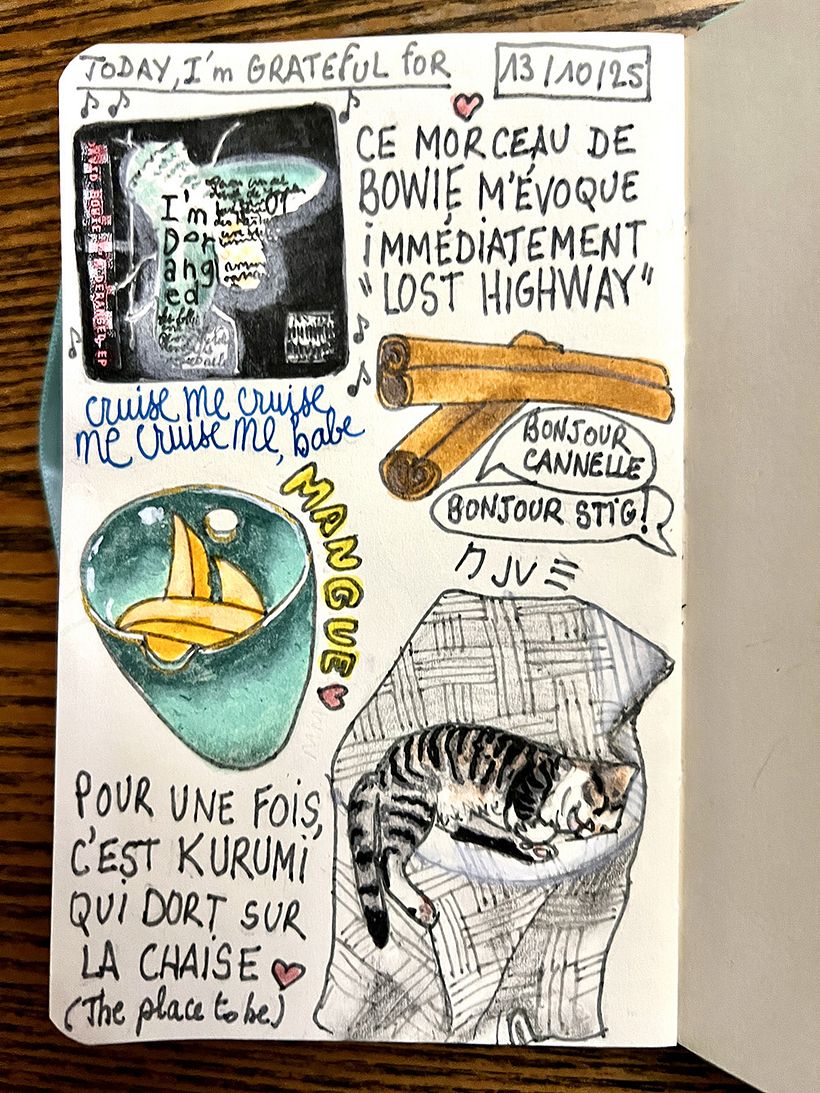 TODAY, I'm GRATEFUL FOR
13/10/25
CE MORCEAU DE
BOWIE M'ÉVOQUE
IMMÉDIATEMENT
"LOST HIGHWAY"
I'm
Der
ang
ed
cruise me cruise
me cruise me, babe
BONJOUR
CANNELLE
BONJOUR STIG!
MANGUE
クルミ
POUR UNE FOIS,
C'EST KURUMI
QUI DORT SUR
LA CHAISE
(The place to be)